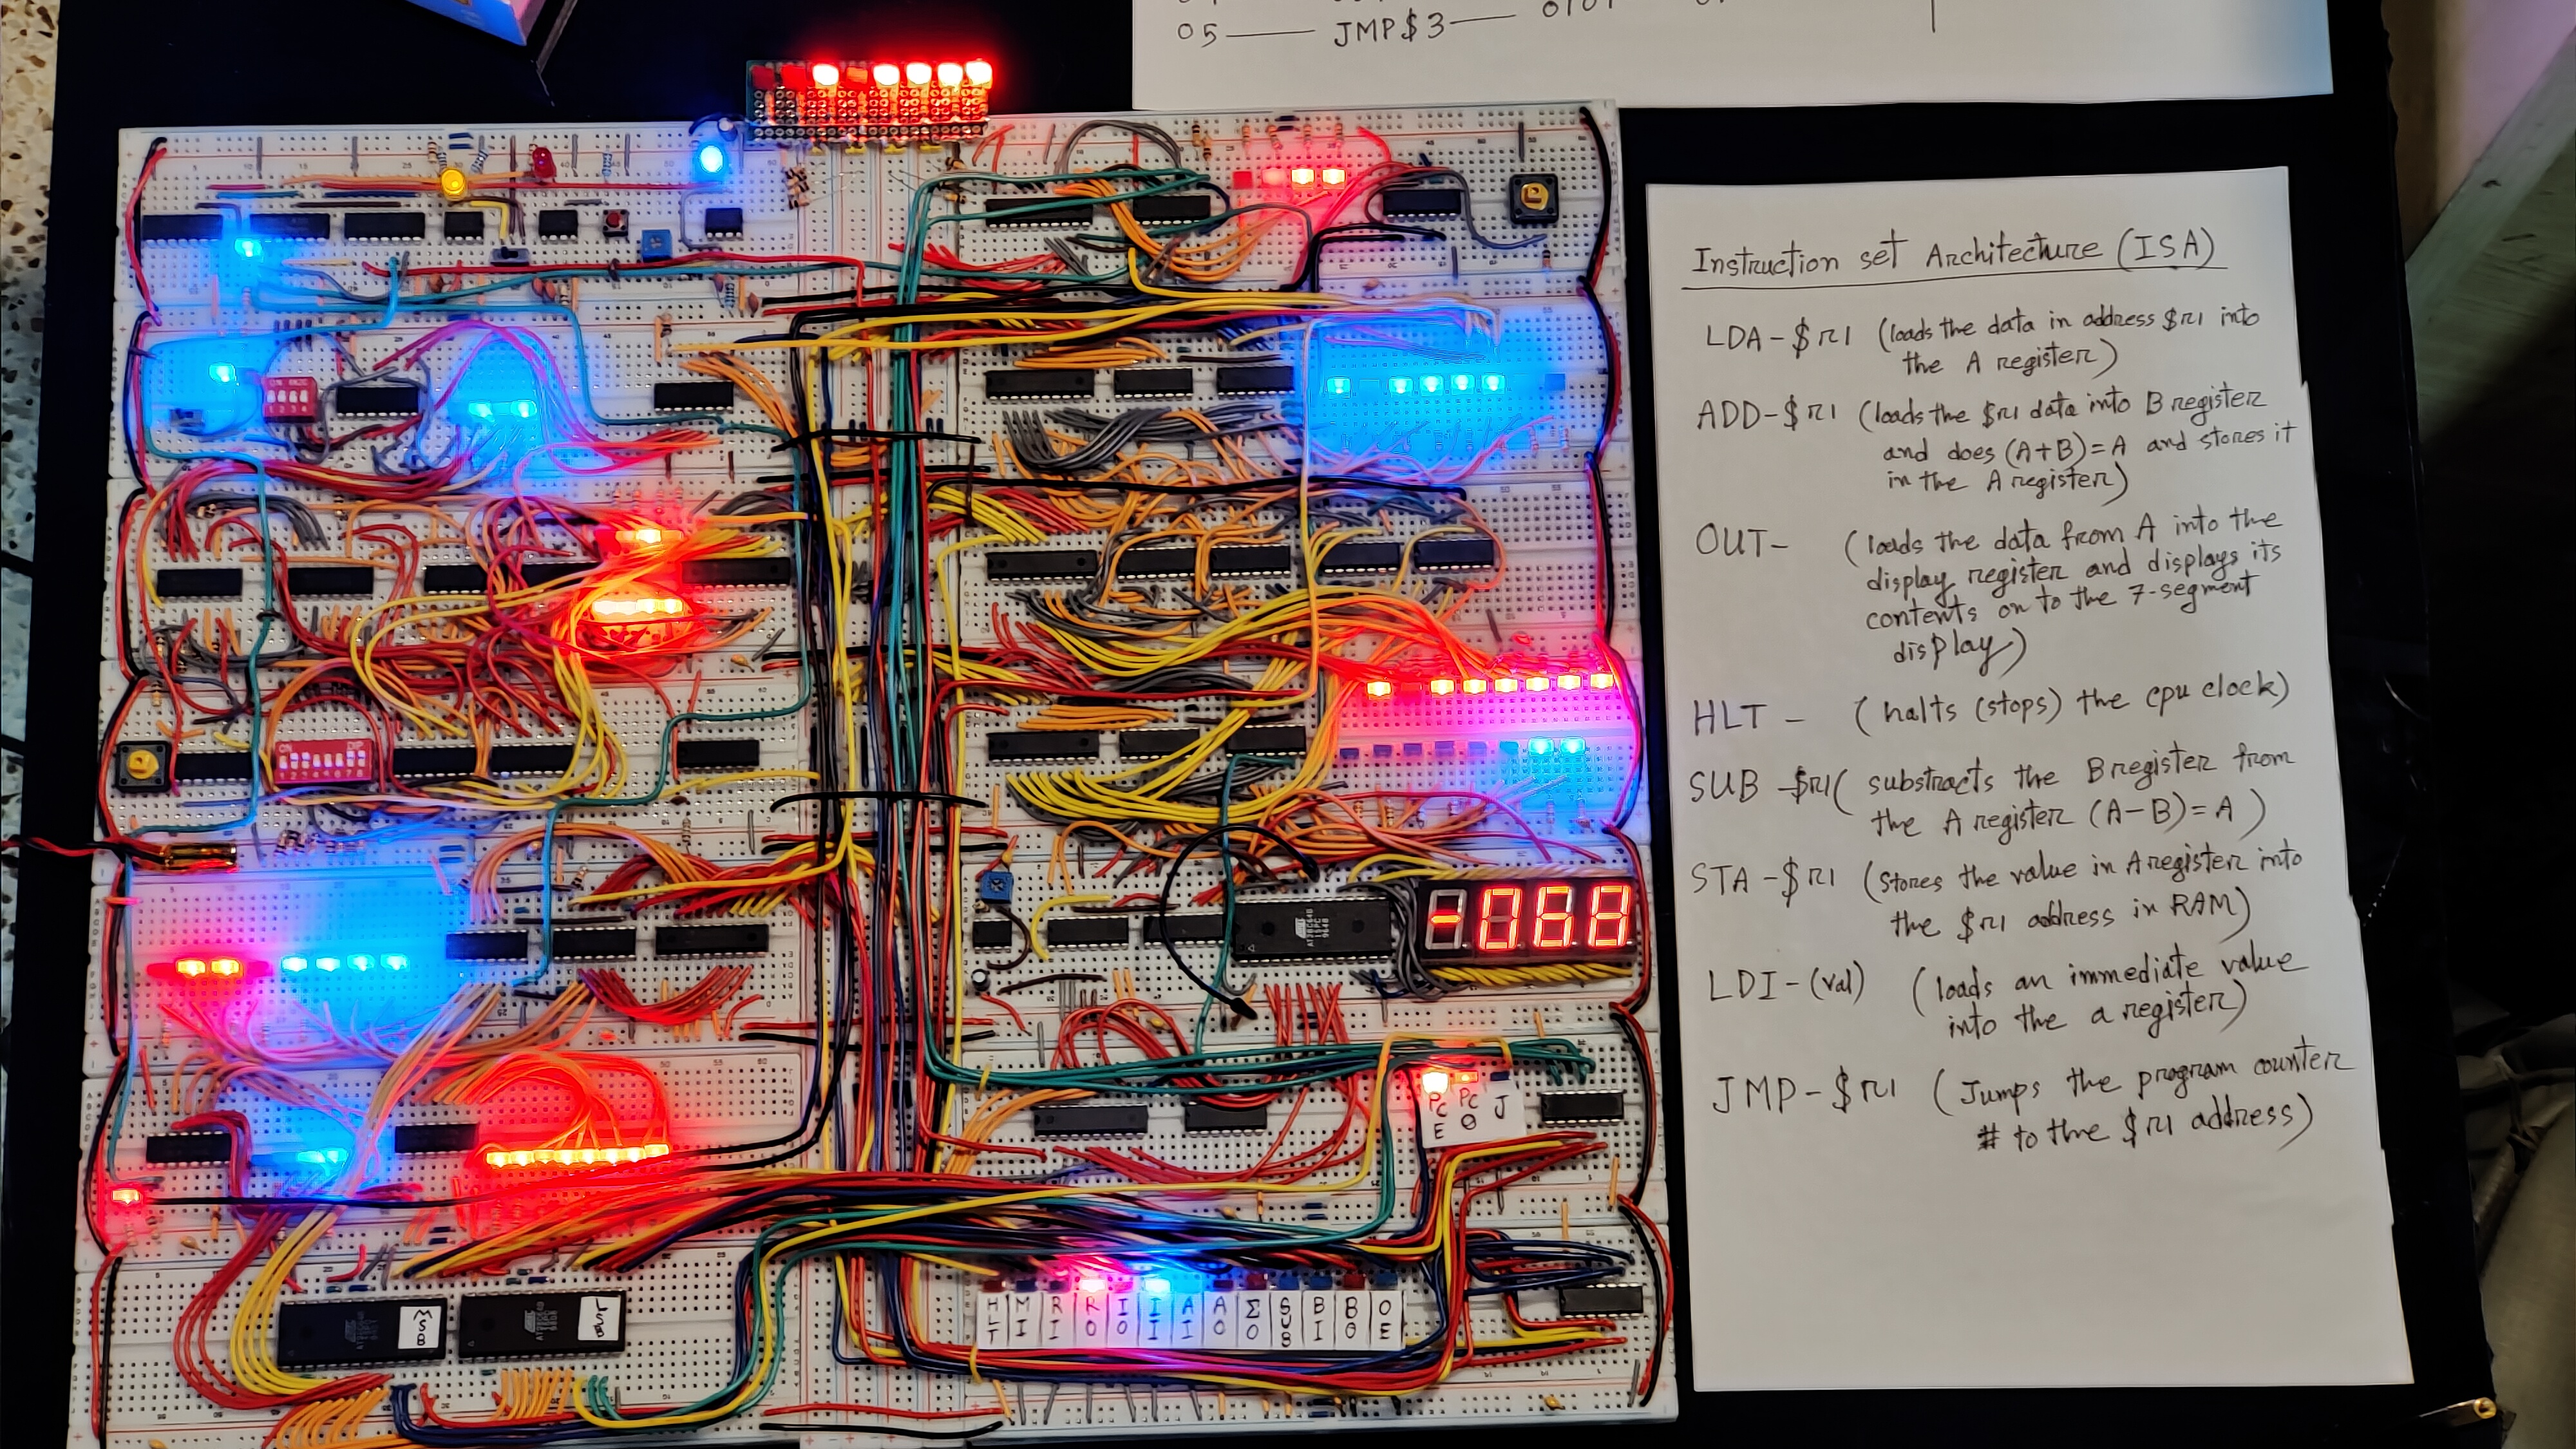 05 —— JMP$3 —— 0101
Instruction set Architecture (ISA)
LDA - $r1 (loads the data in address $r1 into
the A register)
ADD - $r1 (loads the $r1 data into B register
and does (A+B)=A and stores it
in the A register)
OUT- (loads the data from A into the
display register and displays its
contents on to the 7-segment
display)
HLT - (halts (stops) the cpu clock)
SUB -$r1( substracts the B register from
the A register (A-B)=A)
STA - $r1 (Stores the value in A register into
the $r1 address in RAM)
LDI - (val) (loads an immediate value
into the a register)
JMP - $r1 (Jumps the program counter
# to the $r1 address)
-068
PC E PC O J
HLT MI RI RO IO II AI AO ΣO SUB BI BO OE
MSB
LSB